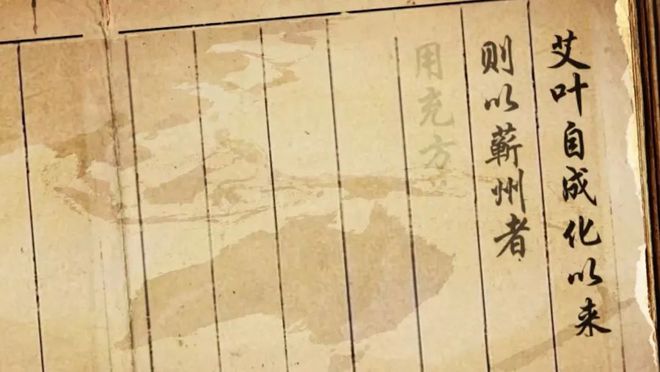 艾叶自成化以来
则以蕲州者
用充方